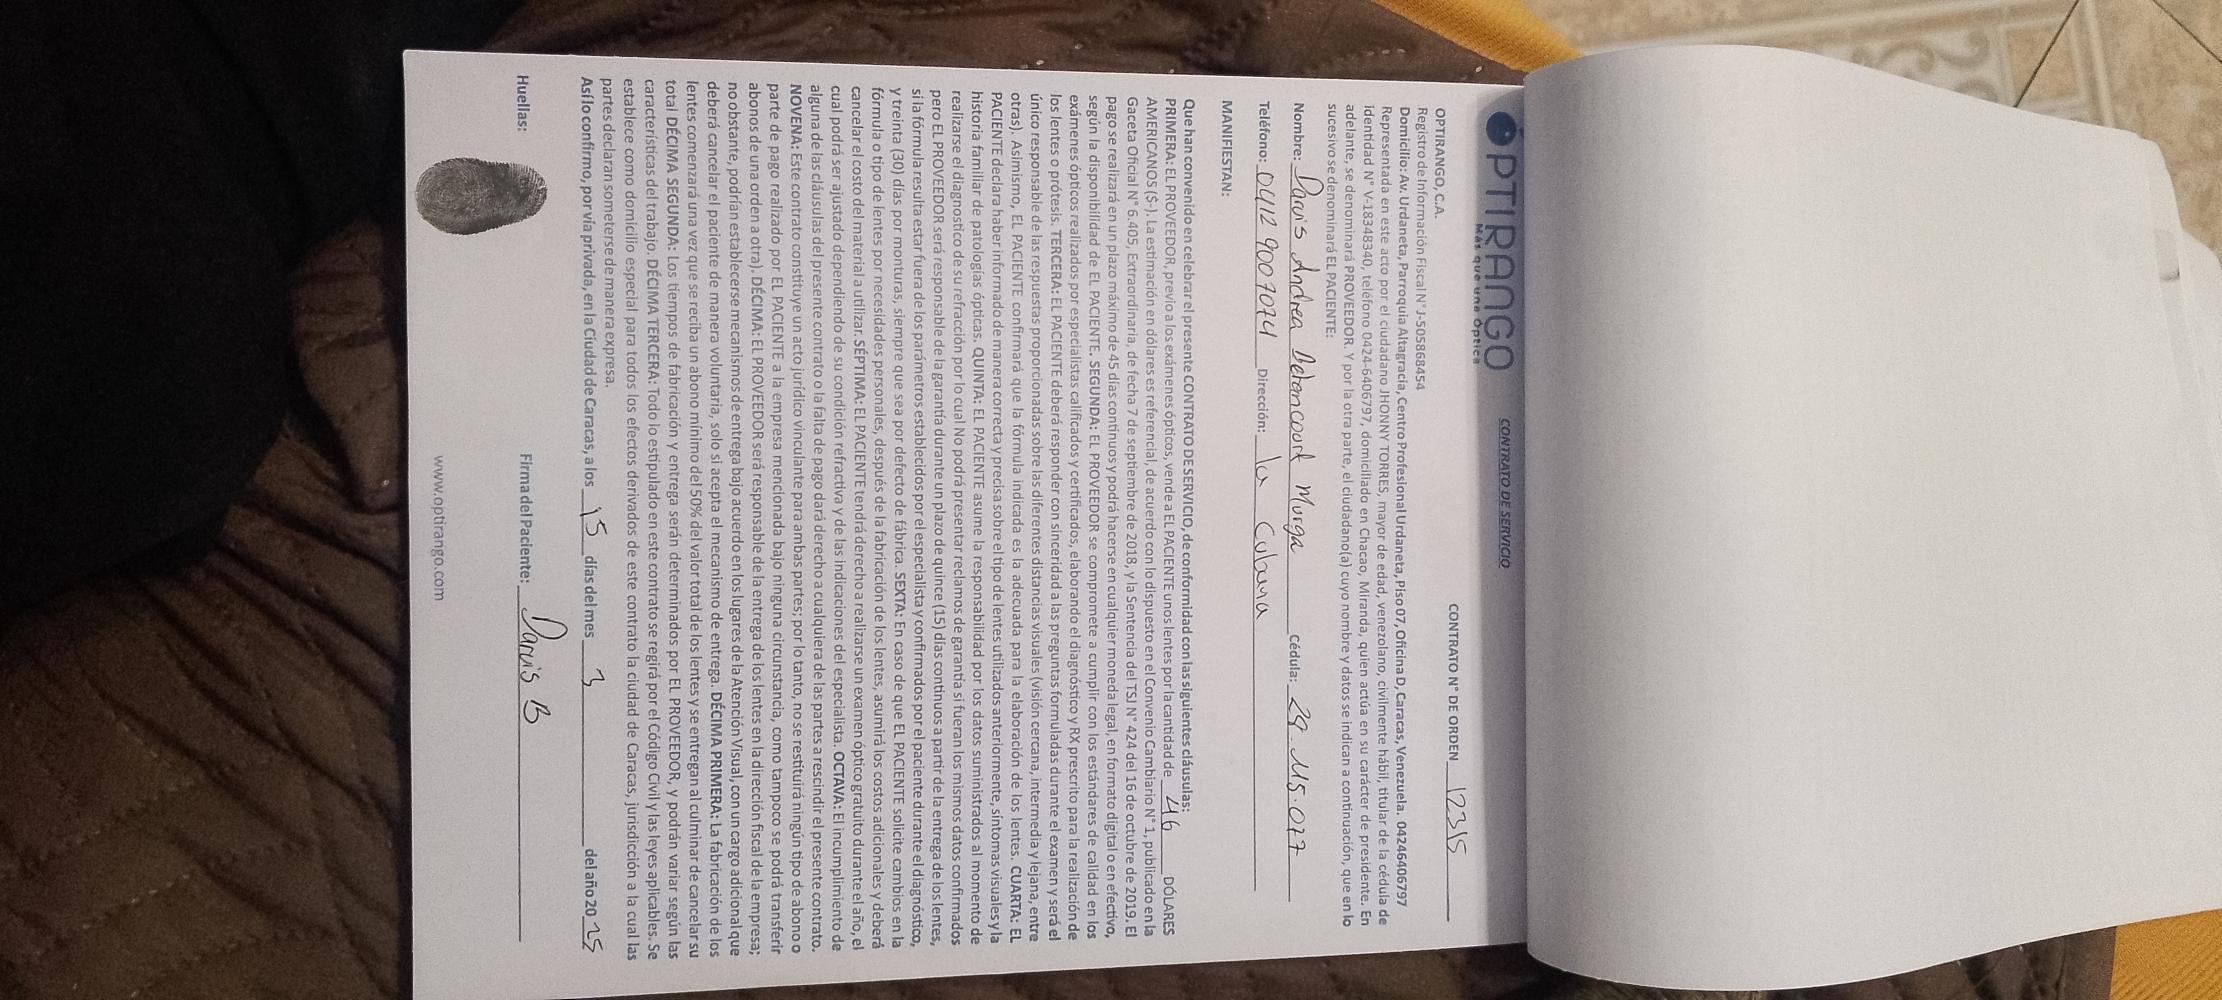 OPTIRANGO
Más que una Óptica
CONTRATO DE SERVICIO
CONTRATO N° DE ORDEN 12315
OPTIRANGO, C.A.
Registro de Información Fiscal N° J-505868454
Domicilio: Av. Urdaneta, Parroquia Altagracia, Centro Profesional Urdaneta, Piso 07, Oficina D, Caracas, Venezuela. 04246406797
Representada en este acto por el ciudadano JHONNY TORRES, mayor de edad, venezolano, civilmente hábil, titular de la cédula de
identidad N° V-18348340, teléfono 0424-6406797, domiciliado en Chacao, Miranda, quien actúa en su carácter de presidente. En
adelante, se denominará PROVEEDOR. Y por la otra parte, el ciudadano(a) cuyo nombre y datos se indican a continuación, que en lo
sucesivo se denominará EL PACIENTE:
Nombre: Darvis Andrea Betancourt Murga cédula: 29.115.077
Teléfono: 0412 9007074 Dirección: la Cubana
MANIFIESTAN:
Que han convenido en celebrar el presente CONTRATO DE SERVICIO, de conformidad con las siguientes cláusulas:
PRIMERA: EL PROVEEDOR, previo a los exámenes ópticos, vende a EL PACIENTE unos lentes por la cantidad de 46 DÓLARES
AMERICANOS ($-). La estimación en dólares es referencial, de acuerdo con lo dispuesto en el Convenio Cambiario N° 1, publicado en la
Gaceta Oficial N° 6.405, Extraordinaria, de fecha 7 de septiembre de 2018, y la Sentencia del TSJ N° 424 del 16 de octubre de 2019. El
pago se realizará en un plazo máximo de 45 días continuos y podrá hacerse en cualquier moneda legal, en formato digital o en efectivo,
según la disponibilidad de EL PACIENTE. SEGUNDA: EL PROVEEDOR se compromete a cumplir con los estándares de calidad en los
exámenes ópticos realizados por especialistas calificados y certificados, elaborando el diagnóstico y RX prescrito para la realización de
los lentes o prótesis. TERCERA: EL PACIENTE deberá responder con sinceridad a las preguntas formuladas durante el examen y será el
único responsable de las respuestas proporcionadas sobre las diferentes distancias visuales (visión cercana, intermedia y lejana, entre
otras). Asimismo, EL PACIENTE confirmará que la fórmula indicada es la adecuada para la elaboración de los lentes. CUARTA: EL
PACIENTE declara haber informado de manera correcta y precisa sobre el tipo de lentes utilizados anteriormente, síntomas visuales y la
historia familiar de patologías ópticas. QUINTA: EL PACIENTE asume la responsabilidad por los datos suministrados al momento de
realizarse el diagnostico de su refracción por lo cual No podrá presentar reclamos de garantía si fueran los mismos datos confirmados
pero EL PROVEEDOR será responsable de la garantía durante un plazo de quince (15) días continuos a partir de la entrega de los lentes,
si la fórmula resulta estar fuera de los parámetros establecidos por el especialista y confirmados por el paciente durante el diagnóstico,
y treinta (30) días por monturas, siempre que sea por defecto de fábrica. SEXTA: En caso de que EL PACIENTE solicite cambios en la
fórmula o tipo de lentes por necesidades personales, después de la fabricación de los lentes, asumirá los costos adicionales y deberá
cancelar el costo del material a utilizar. SÉPTIMA: EL PACIENTE tendrá derecho a realizarse un examen óptico gratuito durante el año, el
cual podrá ser ajustado dependiendo de su condición refractiva y de las indicaciones del especialista. OCTAVA: El incumplimiento de
alguna de las cláusulas del presente contrato o la falta de pago dará derecho a cualquiera de las partes a rescindir el presente contrato.
NOVENA: Este contrato constituye un acto jurídico vinculante para ambas partes; por lo tanto, no se restituirá ningún tipo de abono o
parte de pago realizado por EL PACIENTE a la empresa mencionada bajo ninguna circunstancia, como tampoco se podrá transferir
abonos de una orden a otra). DÉCIMA: EL PROVEEDOR será responsable de la entrega de los lentes en la dirección fiscal de la empresa;
no obstante, podrían establecerse mecanismos de entrega bajo acuerdo en los lugares de la Atención Visual, con un cargo adicional que
deberá cancelar el paciente de manera voluntaria, solo si acepta el mecanismo de entrega. DÉCIMA PRIMERA: La fabricación de los
lentes comenzará una vez que se reciba un abono mínimo del 50% del valor total de los lentes y se entregan al culminar de cancelar su
total DÉCIMA SEGUNDA: Los tiempos de fabricación y entrega serán determinados por EL PROVEEDOR, y podrán variar según las
características del trabajo. DÉCIMA TERCERA: Todo lo estipulado en este contrato se regirá por el Código Civil y las leyes aplicables. Se
establece como domicilio especial para todos los efectos derivados de este contrato la ciudad de Caracas, jurisdicción a la cual las
partes declaran someterse de manera expresa.
Así lo confirmo, por vía privada, en la Ciudad de Caracas, a los 15 días del mes 3 del año 20 25
Huellas: Firma del Paciente: Darvis B
www.optirango.com